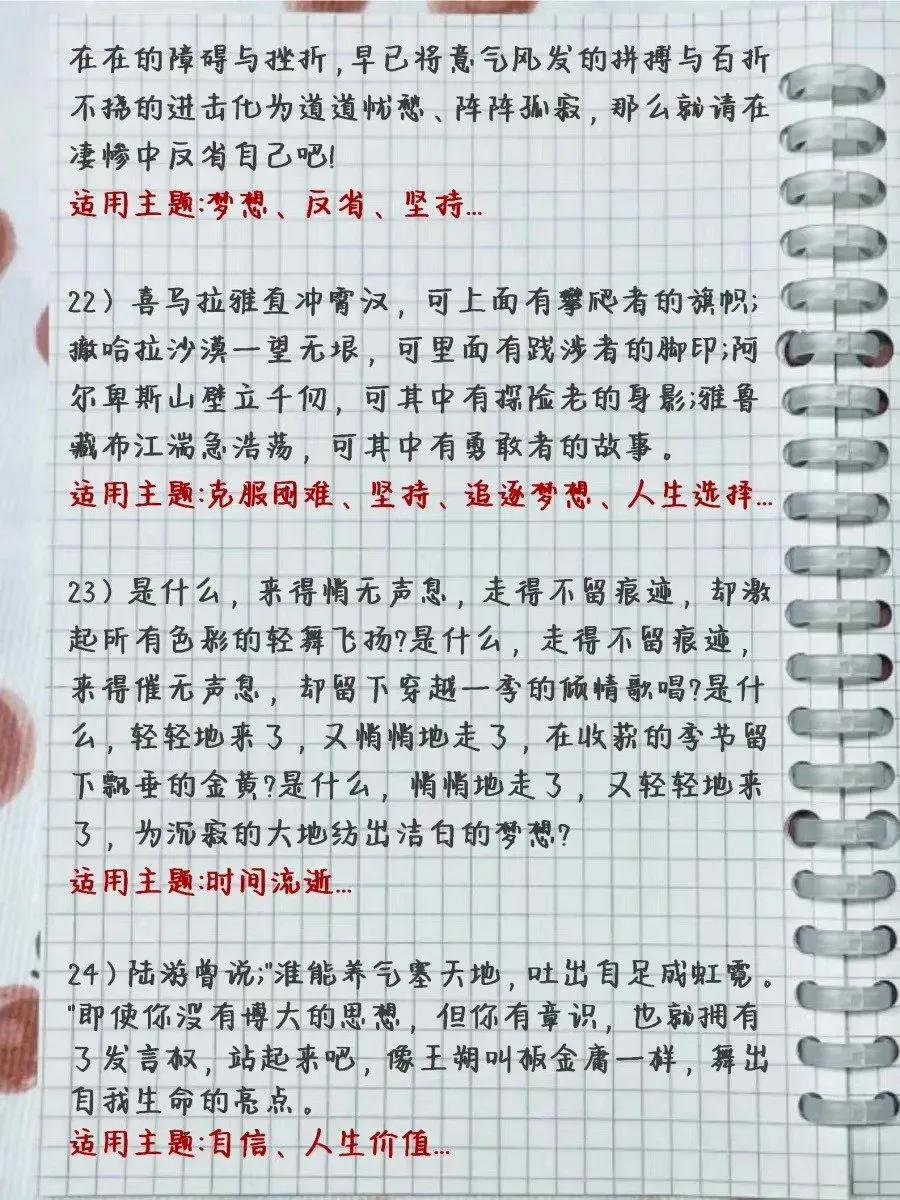 在在的障碍与挫折,早已将意气风发的拼搏与百折
不挠的进击化为道道忧愁、阵阵孤寂,那么就请在
凄惨中反省自己吧!
适用主题:梦想、反省、坚持...
22）喜马拉雅直冲霄汉，可上面有攀爬者的旗帜;
撒哈拉沙漠一望无垠，可里面有跋涉者的脚印;阿
尔卑斯山壁立千仞，可其中有探险老的身影;雅鲁
藏布江湍急浩荡，可其中有勇敢者的故事。
适用主题:克服困难、坚持、追逐梦想、人生选择...
23）是什么，来得悄无声息，走得不留痕迹，却激
起所有色彩的轻舞飞扬?是什么，走得不留痕迹，
来得催无声息，却留下穿越一季的倾情歌唱?是什
么，轻轻地来了，又悄悄地走了，在收获的季节留
下飘垂的金黄?是什么，悄悄地走了，又轻轻地来
了，为沉寂的大地纺出洁白的梦想?
适用主题:时间流逝...
24）陆游曾说;"准能养气塞天地，吐出自足成虹霓。
"即使你没有博大的思想，但你有章识，也就拥有
了发言权，站起来吧，像王朔叫板金庸一样，舞出
自我生命的亮点。
适用主题:自信、人生价值...